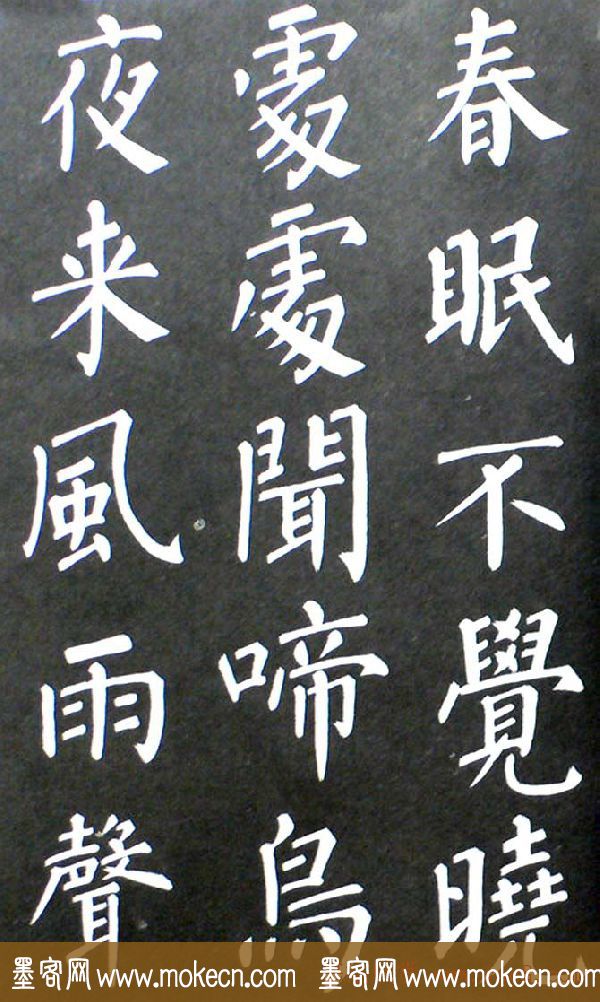 春眠不覺曉
處處聞啼鳥
夜来風雨聲
墨客网 www.mokecn.com 墨客网 www.mokecn.com